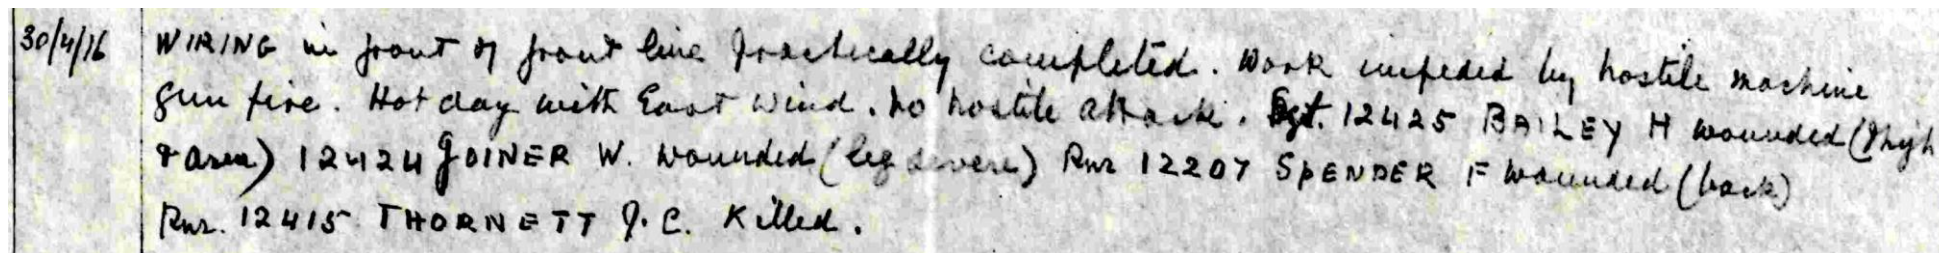 30/4/16 WIRING in front of front line practically completed. Work impeded by hostile machine
gun fire. Hot day with East wind. No hostile attack. Sgt. 12425 BAILEY H wounded (thigh
& arm) 12424 JOINER W. wounded (leg severe) Rmr 12207 SPENDER F wounded (back)
Rmr. 12415 THORNETT J.C. Killed.